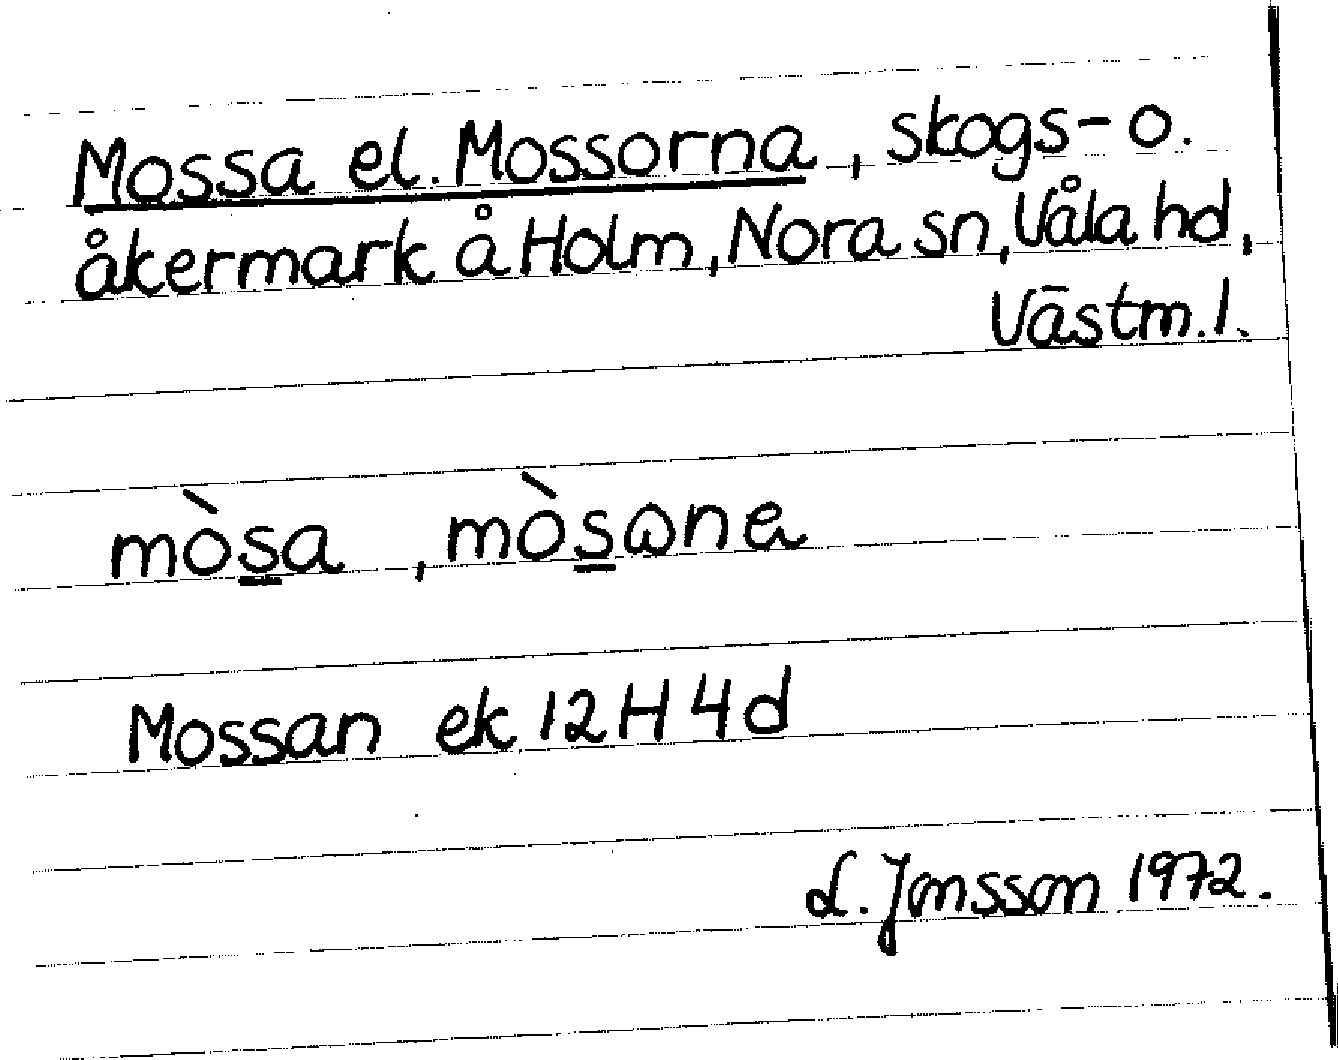 Mossa el. Mossorna, skogs- o.
åkermark å Holm, Nora sn, Våla hd,
Västm. l.
mòsa, mòsɷnɐ
Mossan ek 12H4d
L. Jonsson 1972.